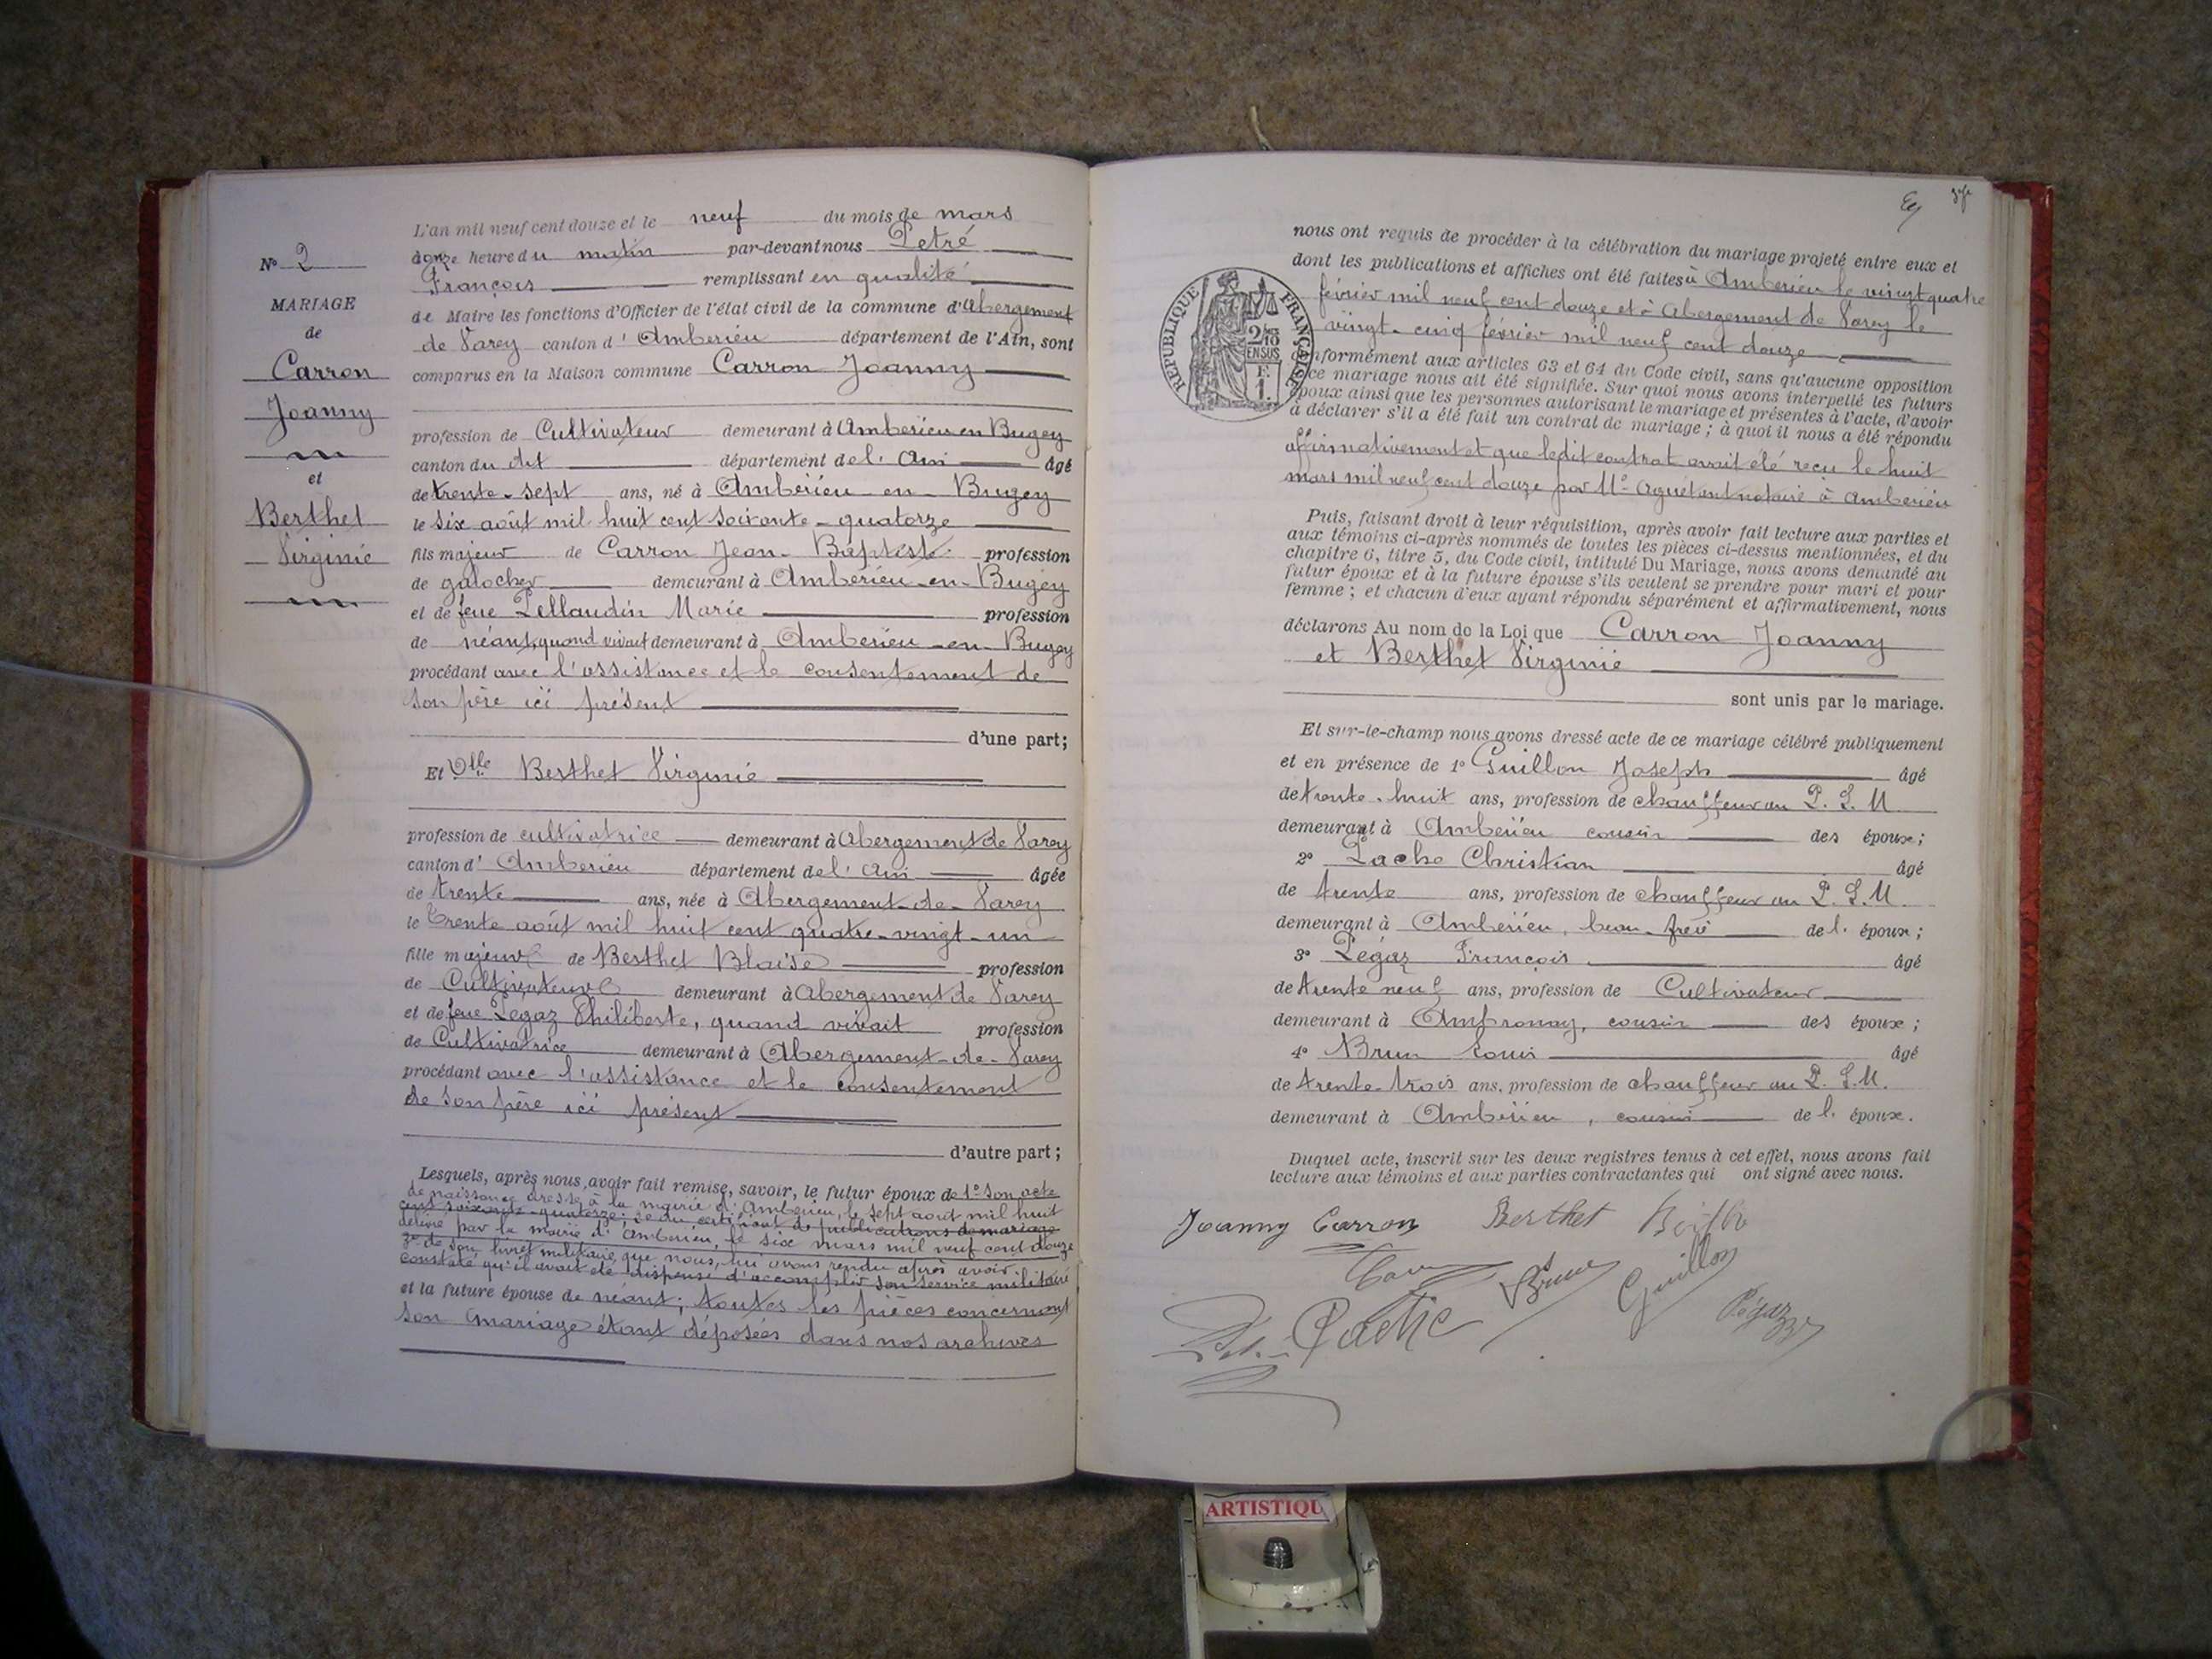 N° 2
MARIAGE
de
Carron
Joanny
et
Berthet
Virginie
L'an mil neuf cent douze et le neuf du mois de mars
onze heure du matin par-devant nous Petré
François remplissant en qualité
de Maire les fonctions d'Officier de l'état civil de la commune d'Abergement
de Varey canton d'Amberieu département de l'Ain, sont
comparus en la Maison commune Carron Joanny
profession de Cultivateur demeurant à Amberieu en Bugey
canton du dit département de l'Ain âgé
de trente-sept ans, né à Ambérieu-en-Bugey
le six août mil huit cent soixante-quatorze
fils majeur de Carron Jean-Baptiste profession
de galocher demeurant à Ambérieu-en-Bugey
et de feue Pellaudin Marie profession
de néant, quand vivait demeurant à Amberieu-en-Bugey
procédant avec l'assistance et le consentement de
son père ici présent
d'une part;
Et Dlle Berthet Virginie
profession de cultivatrice demeurant à Abergement de Varey
canton d'Amberieu département de l'Ain âgée
de trente ans, née à Abergement-de-Varey
le trente août mil huit cent quatre-vingt-un
fille majeure de Berthet Blaise profession
de Cultivateur demeurant à Abergement de Varey
et de feue Pegaz Philiberte, quand vivait profession
de Cultivatrice demeurant à Abergement-de-Varey
procédant avec l'assistance et le consentement
de son père ici présent
d'autre part;
Lesquels, après nous avoir fait remise, savoir, le futur époux de 1° son acte
de naissance dressé à la mairie d'Amberieu, le sept août mil huit
cent soixante-quatorze; 2° du certificat de publications de mariage
délivré par la mairie d'Amberieu, le six mars mil neuf cent douze
3° de son livret militaire que nous lui avons rendu après avoir
constaté qu'il avait été dispensé d'accomplir son service militaire
et la future épouse de néant; toutes les pièces concernant
son mariage étant déposées dans nos archives
nous ont requis de procéder à la célébration du mariage projeté entre eux et
dont les publications et affiches ont été faites à Amberieu le vingt quatre
février mil neuf cent douze et à Abergement de Varey le
vingt-cinq février mil neuf cent douze
RÉPUBLIQUE FRANÇAISE
2/10
EN SUS
F.
1.
nformément aux articles 63 et 64 du Code civil, sans qu'aucune opposition
ce mariage nous ait été signifiée. Sur quoi nous avons interpellé les futurs
époux ainsi que les personnes autorisant le mariage et présentes à l'acte, d'avoir
à déclarer s'il a été fait un contrat de mariage ; à quoi il nous a été répondu
affirmativement et que ledit contrat avait été reçu le huit
mars mil neuf cent douze par Me Aguétant notaire à Amberieu
Puis, faisant droit à leur réquisition, après avoir fait lecture aux parties et
aux témoins ci-après nommés de toutes les pièces ci-dessus mentionnées, et du
chapitre 6, titre 5, du Code civil, intitulé Du Mariage, nous avons demandé au
futur époux et à la future épouse s'ils veulent se prendre pour mari et pour
femme ; et chacun d'eux ayant répondu séparément et affirmativement, nous
déclarons Au nom de la Loi que Carron Joanny
et Berthet Virginie
sont unis par le mariage.
Et sur-le-champ nous avons dressé acte de ce mariage célébré publiquement
et en présence de 1° Guillon Joseph âgé
de trente-huit ans, profession de chauffeur au P. L. M
demeurant à Ambérieu cousin des époux;
2° Pache Christian âgé
de trente ans, profession de chauffeur au P. L. M.
demeurant à Ambérieu, beau-frère de l'époux;
3° Pégaz François âgé
de trente neuf ans, profession de Cultivateur
demeurant à Ambronay, cousin des époux;
4° Brun Louis âgé
de trente-trois ans, profession de chauffeur au P. L. M.
demeurant à Ambérieu, cousin de l'époux.
Duquel acte, inscrit sur les deux registres tenus à cet effet, nous avons fait
lecture aux témoins et aux parties contractantes qui ont signé avec nous.
Joanny Carron Berthet
Brun Guillon
Pache Pégaz
ARTISTIQU